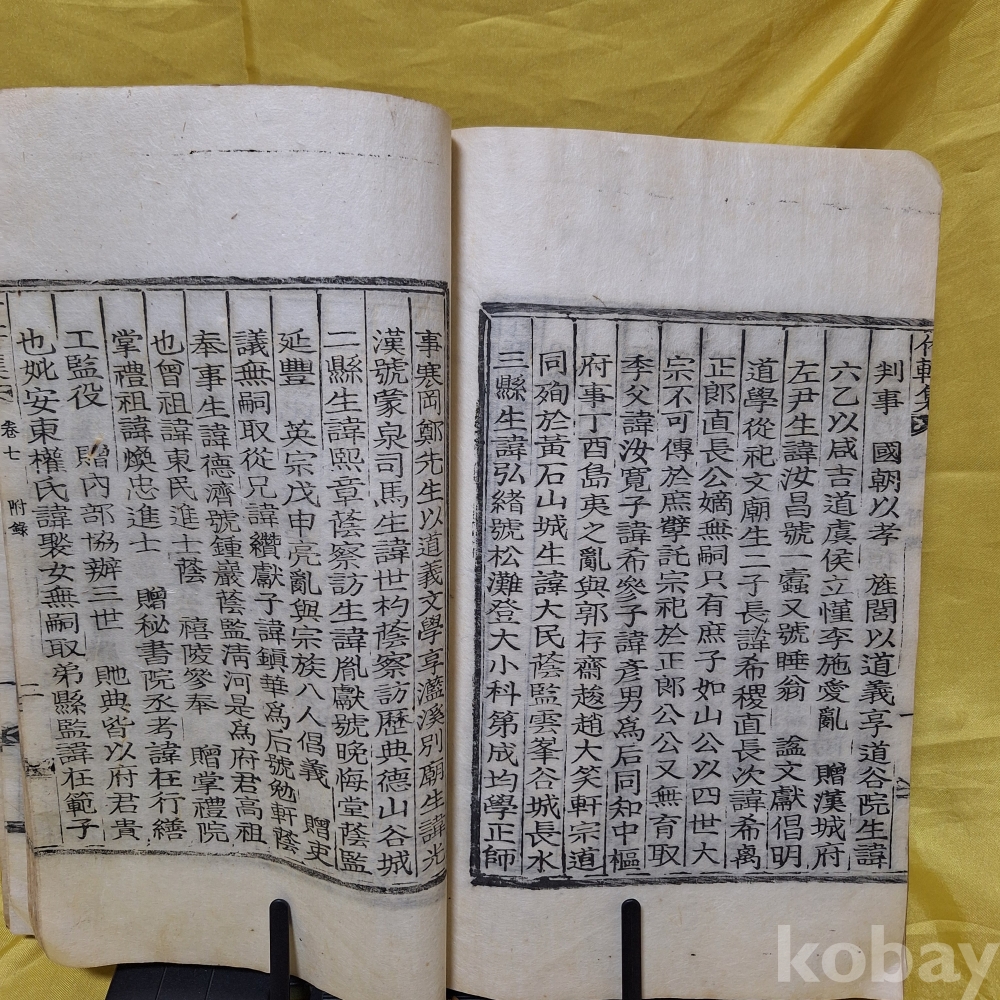 判事 國朝以孝 旌閭以道義享道谷院生諱
六乙以咸吉道虞侯立慬李施愛亂 贈漢城府
左尹生諱汝昌號一蠹又號睡翁 謚文獻倡明
道學從祀文廟生二子長諱希稷直長次諱希卨
正郎直長公嫡無嗣只有庶子如山公以四世大
宗不可傳於庶孽託宗祀於正郎公公又無育取
季父諱汝寬子諱希參子諱彥男爲后同知中樞
府事丁酉島夷之亂與郭存齋䞭趙大笑軒宗道
同殉於黃石山城生諱大民蔭監雲峯谷城長水
三縣生諱弘緖號松灘登大小科第成均學正師
事寒岡鄭先生以道義文學享灆溪別廟生諱光
漢號蒙泉司馬生諱世杓蔭察訪歷典德山谷城
二縣生諱熙章蔭察訪生諱胤獻號晚悔堂蔭監
延豐 英宗戊申亮亂與宗族八人倡義 贈吏
議無嗣取從兄諱纘獻子諱鎭華爲后號勉軒蔭
奉事生諱德濟號鍾巖蔭監淸河是爲府君高祖
也曾祖諱東民進士蔭 禧陵參奉 贈掌禮院
掌禮祖諱煥忠進士 贈秘書院丞考諱在行繕
工監役 贈內部協辦三世 貤典皆以府君貴
也妣安東權氏諱㝡女無嗣取弟縣監諱在範子
卷七 附錄 二
kobay